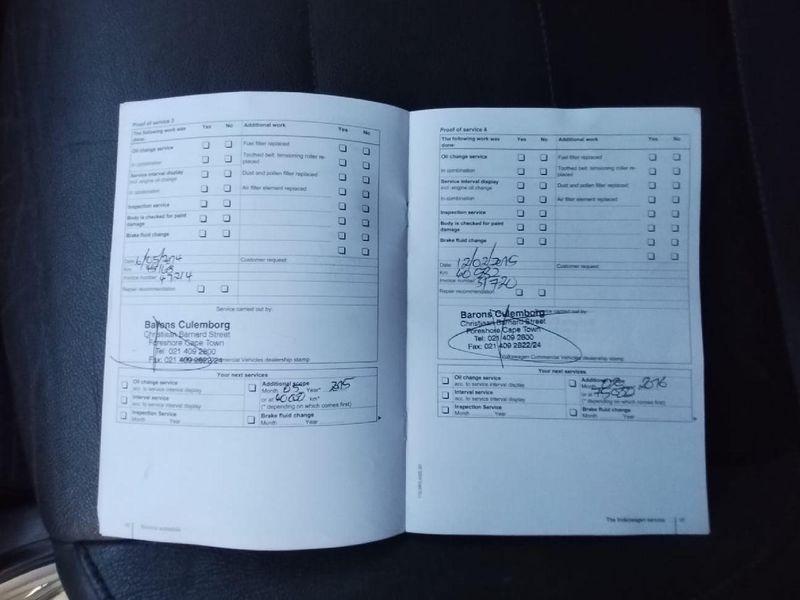 Proof of service 3
The following work was done: Yes No Additional work Yes No
Oil change service Fuel filter replaced
In combination Toothed belt, tensioning roller re-placed
Service interval display Dust and pollen filter replaced
incl. engine oil change
In combination Air filter element replaced
Inspection service
Body is checked for paint damage
Brake fluid change
Date
Km Customer request:
Invoice number 49214
Repair recommendation
Service carried out by:
Barons Culemborg
Christiaan Barnard Street
Foreshore Cape Town
Tel: 021 409 2800
Fax: 021 409 2822/24
Commercial Vehicles dealership stamp
Your next services
Oil change service
acc. to service interval display
Interval service
acc. to service interval display
Inspection Service
Month Year
Additional scope
Month 05 Year* 2015
or at 60 000 km*
(* depending on which comes first)
Brake fluid change
Month Year
Service schedule
Proof of service 4
The following work was done: Yes No Additional work Yes No
Oil change service Fuel filter replaced
In combination Toothed belt, tensioning roller re-placed
Service interval display Dust and pollen filter replaced
incl. engine oil change
In combination Air filter element replaced
Inspection service
Body is checked for paint damage
Brake fluid change
Date 12/02/2015
Km Customer request:
Invoice number 31720
Repair recommendation
Service carried out by:
Barons Culemborg
Christiaan Barnard Street
Foreshore Cape Town
Tel: 021 409 2800
Fax: 021 409 2822/24
Volkswagen Commercial Vehicles dealership stamp
Your next services
Oil change service
acc. to service interval display
Interval service
acc. to service interval display
Inspection Service
Month Year
Additional scope
Month 2016
or at 75 000
(* depending on which comes first)
Brake fluid change
Month Year
The Volkswagen service